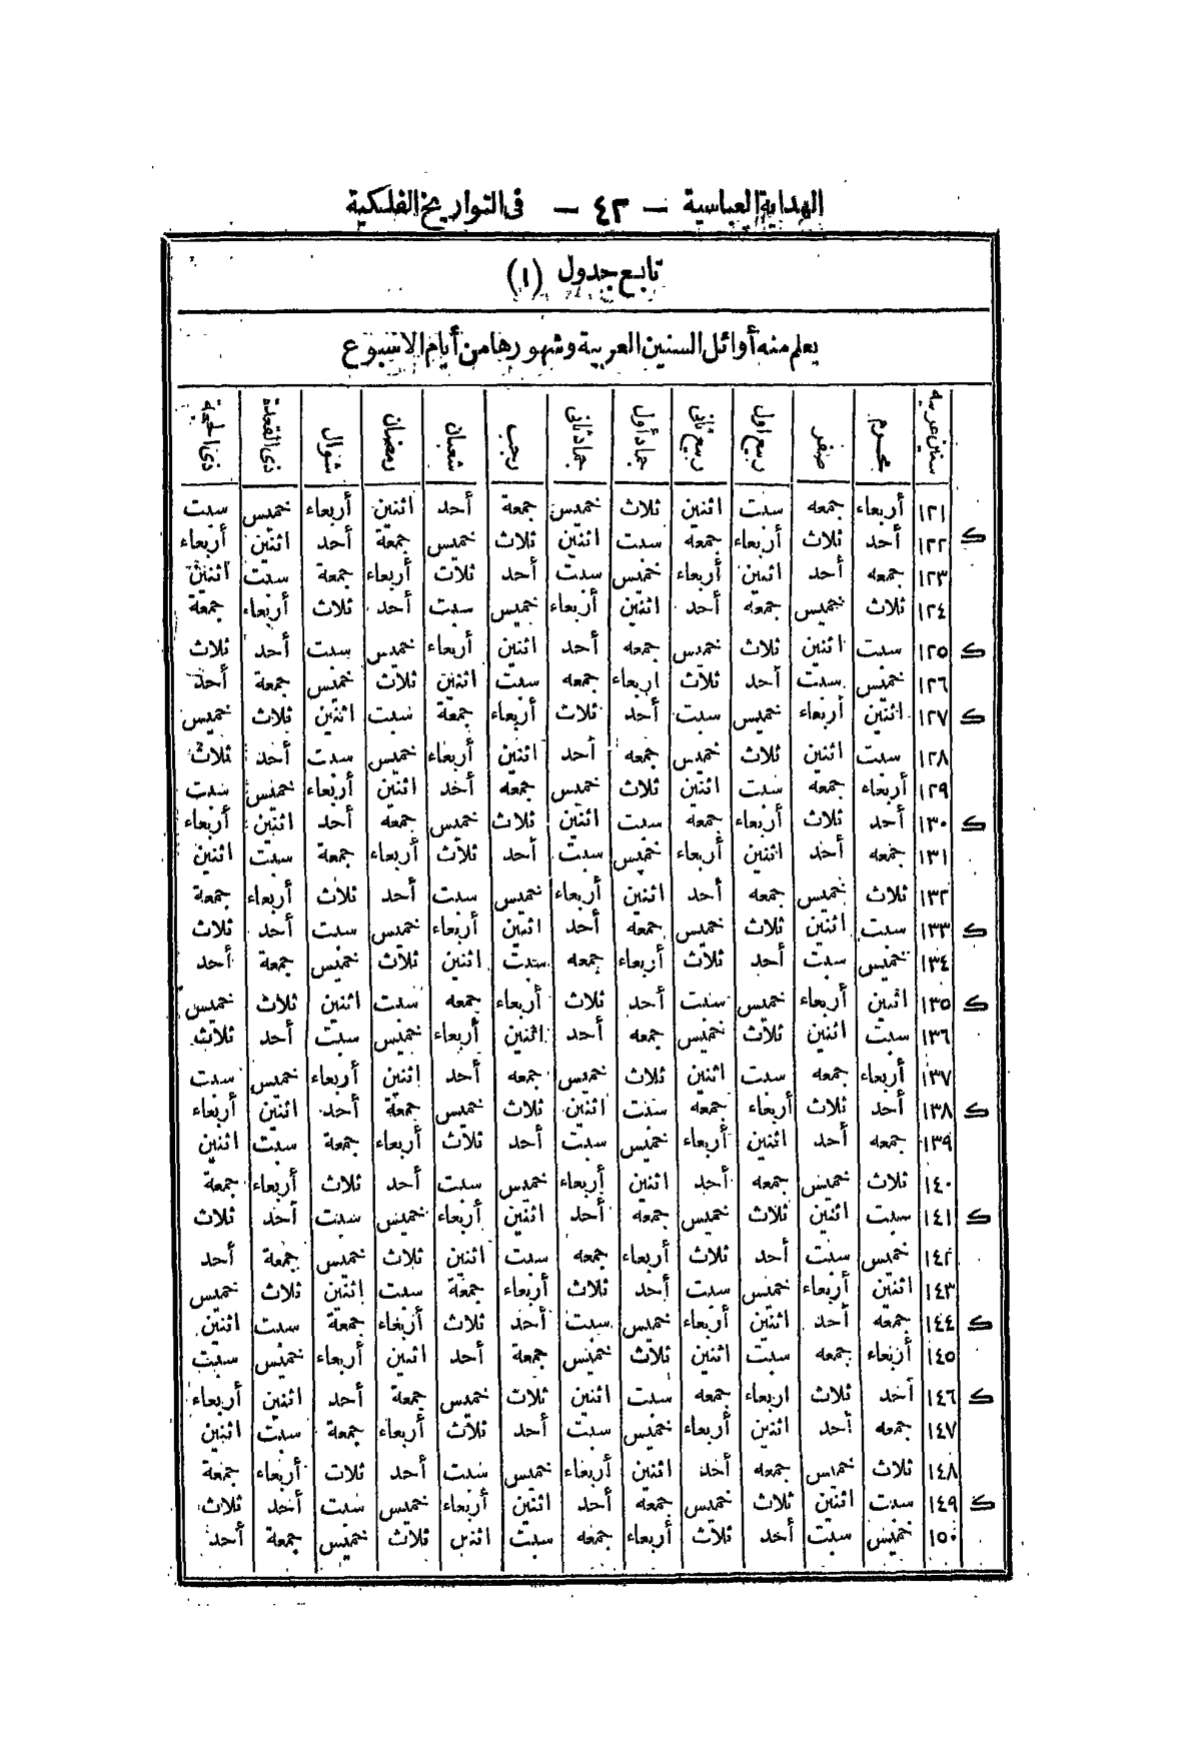 الهداية العباسية — ٤٢ — فى التواريخ الفلكية
تابع جدول (١)
يعلم منه أوائل السنين العربية وشهورها من أيام الاسبوع
سنين عربيه محرم صفر ربيع اول ربيع ثانى جماد أول جماد ثانى رجب شعبان رمضان شوال ذى القعدة ذى الحجة
١٢١ أربعاء جمعه سبت اثنين ثلاث خميس جمعة أحد اثنين أربعاء خميس سبت
ك ١٢٢ أحد ثلاث أربعاء جمعه سبت اثنين ثلاث خميس جمعة أحد اثنين أربعاء
١٢٣ جمعه أحد اثنين أربعاء خميس سبت أحد ثلاث أربعاء جمعة سبت اثنين
١٢٤ ثلاث خميس جمعه أحد اثنين أربعاء خميس سبت أحد ثلاث أربعاء جمعة
ك ١٢٥ سبت اثنين ثلاث خميس جمعه أحد اثنين أربعاء خميس سبت أحد ثلاث
١٢٦ خميس سبت أحد ثلاث اربعاء جمعه سبت اثنين ثلاث خميس جمعة أحد
ك ١٢٧ اثنين أربعاء خميس سبت أحد ثلاث أربعاء جمعة سبت اثنين ثلاث خميس
١٢٨ سبت اثنين ثلاث خميس جمعه أحد اثنين أربعاء خميس سبت أحد ثلاث
١٢٩ أربعاء جمعه سبت اثنين ثلاث خميس جمعه أحد اثنين أربعاء خميس سبت
ك ١٣٠ أحد ثلاث أربعاء جمعه سبت اثنين ثلاث خميس جمعه أحد اثنين أربعاء
١٣١ جمعه أحد اثنين أربعاء خميس سبت أحد ثلاث أربعاء جمعة سبت اثنين
١٣٢ ثلاث خميس جمعه أحد اثنين أربعاء خميس سبت أحد ثلاث أربعاء جمعة
ك ١٣٣ سبت اثنين ثلاث خميس جمعة أحد اثنين أربعاء خميس سبت أحد ثلاث
١٣٤ خميس سبت أحد ثلاث أربعاء جمعه سبت اثنين ثلاث خميس جمعة أحد
ك ١٣٥ اثنين أربعاء خميس سبت أحد ثلاث أربعاء جمعه سبت اثنين ثلاث خميس
١٣٦ سبت اثنين ثلاث خميس جمعه أحد اثنين أربعاء خميس سبت أحد ثلاث
١٣٧ أربعاء جمعه سبت اثنين ثلاث خميس جمعه أحد اثنين أربعاء خميس سبت
ك ١٣٨ أحد ثلاث أربعاء جمعه سبت اثنين ثلاث خميس جمعة أحد اثنين أربعاء
١٣٩ جمعه أحد اثنين أربعاء خميس سبت أحد ثلاث أربعاء جمعة سبت اثنين
١٤٠ ثلاث خميس جمعه أحد اثنين أربعاء خميس سبت أحد ثلاث أربعاء جمعة
ك ١٤١ سبت اثنين ثلاث خميس جمعه أحد اثنين أربعاء خميس سبت أحد ثلاث
١٤٢ خميس سبت أحد ثلاث أربعاء جمعه سبت اثنين ثلاث خميس جمعة أحد
١٤٣ اثنين أربعاء خميس سبت أحد ثلاث أربعاء جمعة سبت اثنين ثلاث خميس
ك ١٤٤ جمعه أحد اثنين أربعاء خميس سبت أحد ثلاث أربعاء جمعة سبت اثنين
١٤٥ أربعاء جمعه سبت اثنين ثلاث خميس جمعة أحد اثنين أربعاء خميس سبت
ك ١٤٦ أحد ثلاث اربعاء جمعه سبت اثنين ثلاث خميس جمعة أحد اثنين أربعاء
١٤٧ جمعه أحد اثنين أربعاء خميس سبت أحد ثلاث أربعاء جمعة سبت اثنين
١٤٨ ثلاث خميس جمعه أحد اثنين أربعاء خميس سبت أحد ثلاث أربعاء جمعة
ك ١٤٩ سبت اثنين ثلاث خميس جمعه أحد اثنين أربعاء خميس سبت أحد ثلاث
١٥٠ خميس سبت أحد ثلاث أربعاء جمعه سبت اثنين ثلاث خميس جمعة أحد